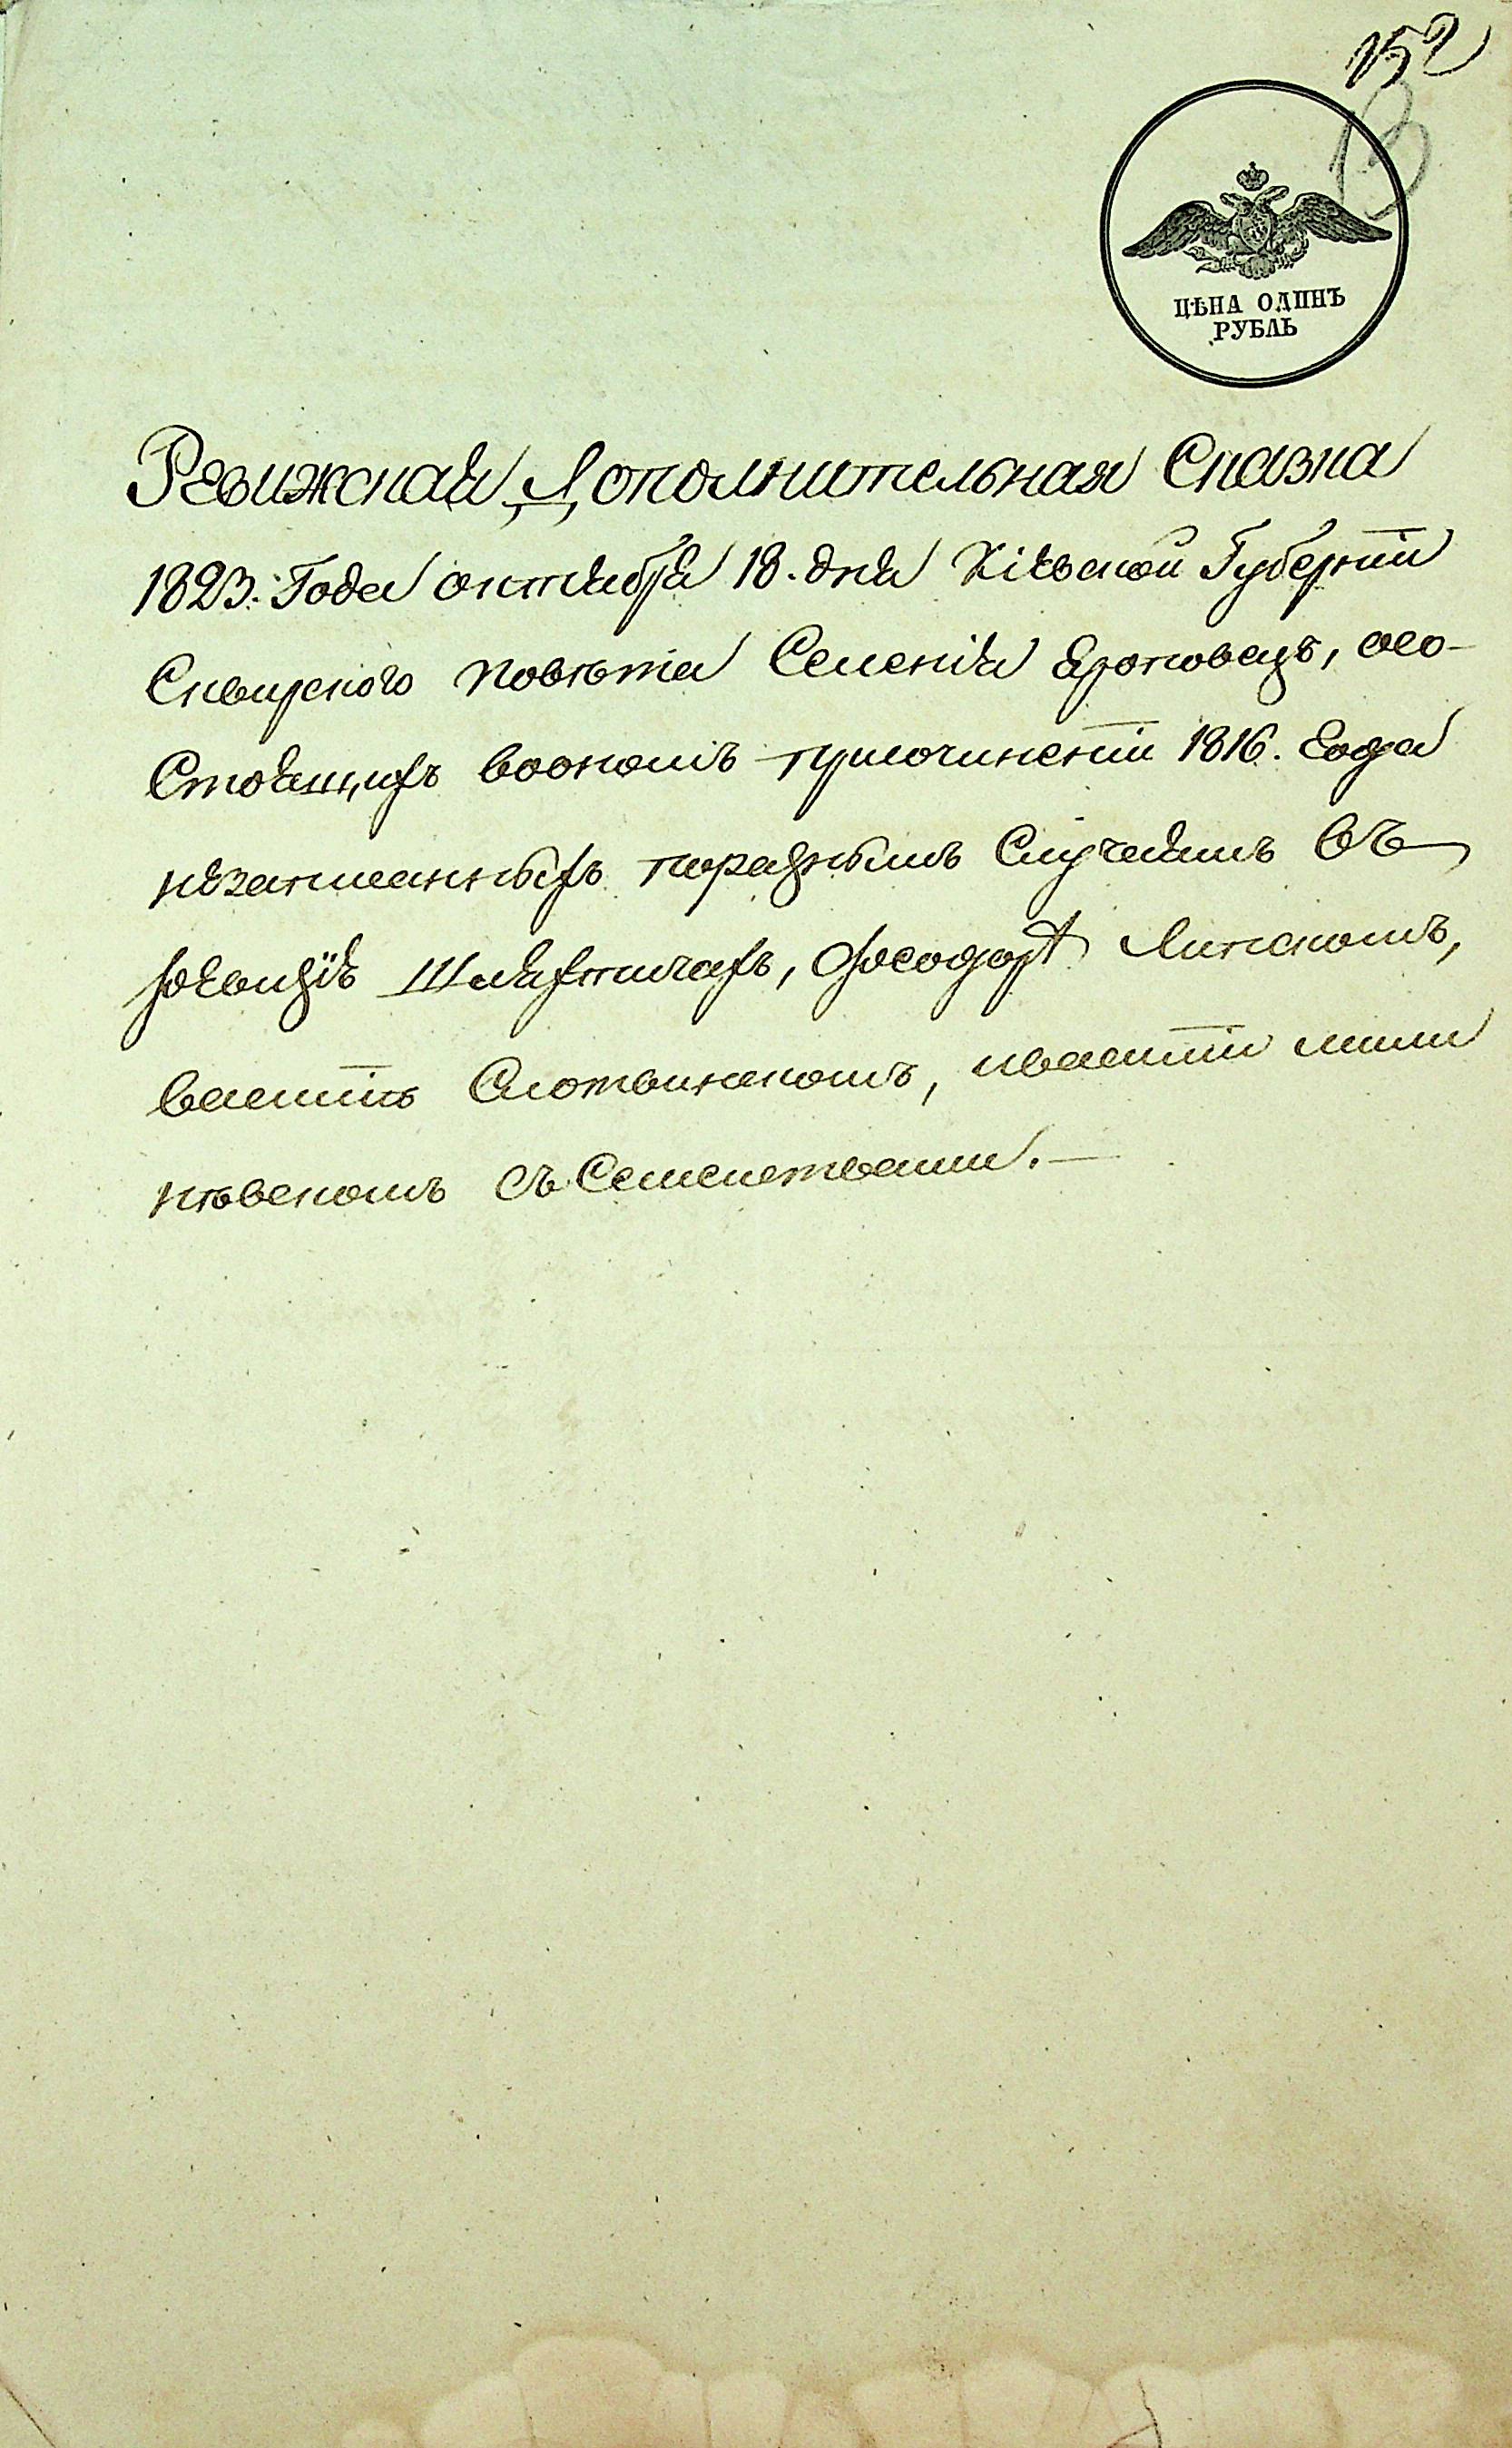 152
13
ЦѢНА ОДИНЪ
РУБЛЬ
Ревижская Дополнительная Сказка
1823. Года октября 18. дня Кіевской Губерніи
Сквирского повѣта Селенія Ерчковецъ, осо-
Стоящихъ воономъ приочиненіи 1816. Года
незаписанныхъ поразнымъ Случаямъ въ
ревизіи Шляхтичахъ, Феодорѣ Липскомъ,
василів Слотвинскомъ, иваситіи мали
нъвскомъ съ Семействами.